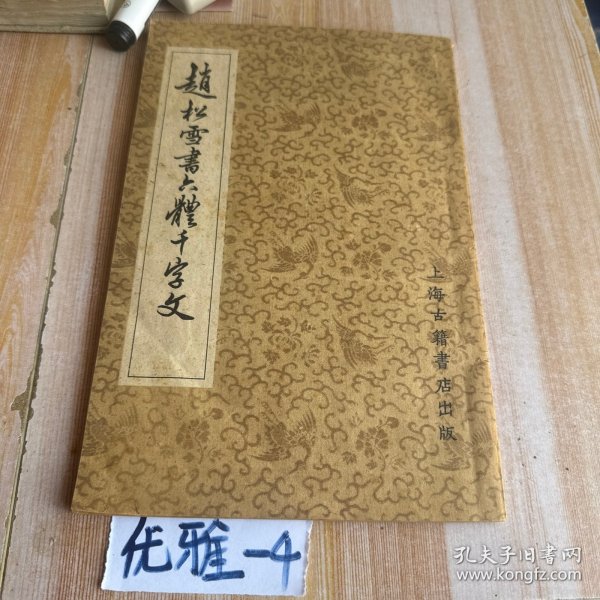 趙松雪書六體千字文
上海古籍書店出版
优雅-4
孔夫子旧书网
www.kongfz.com